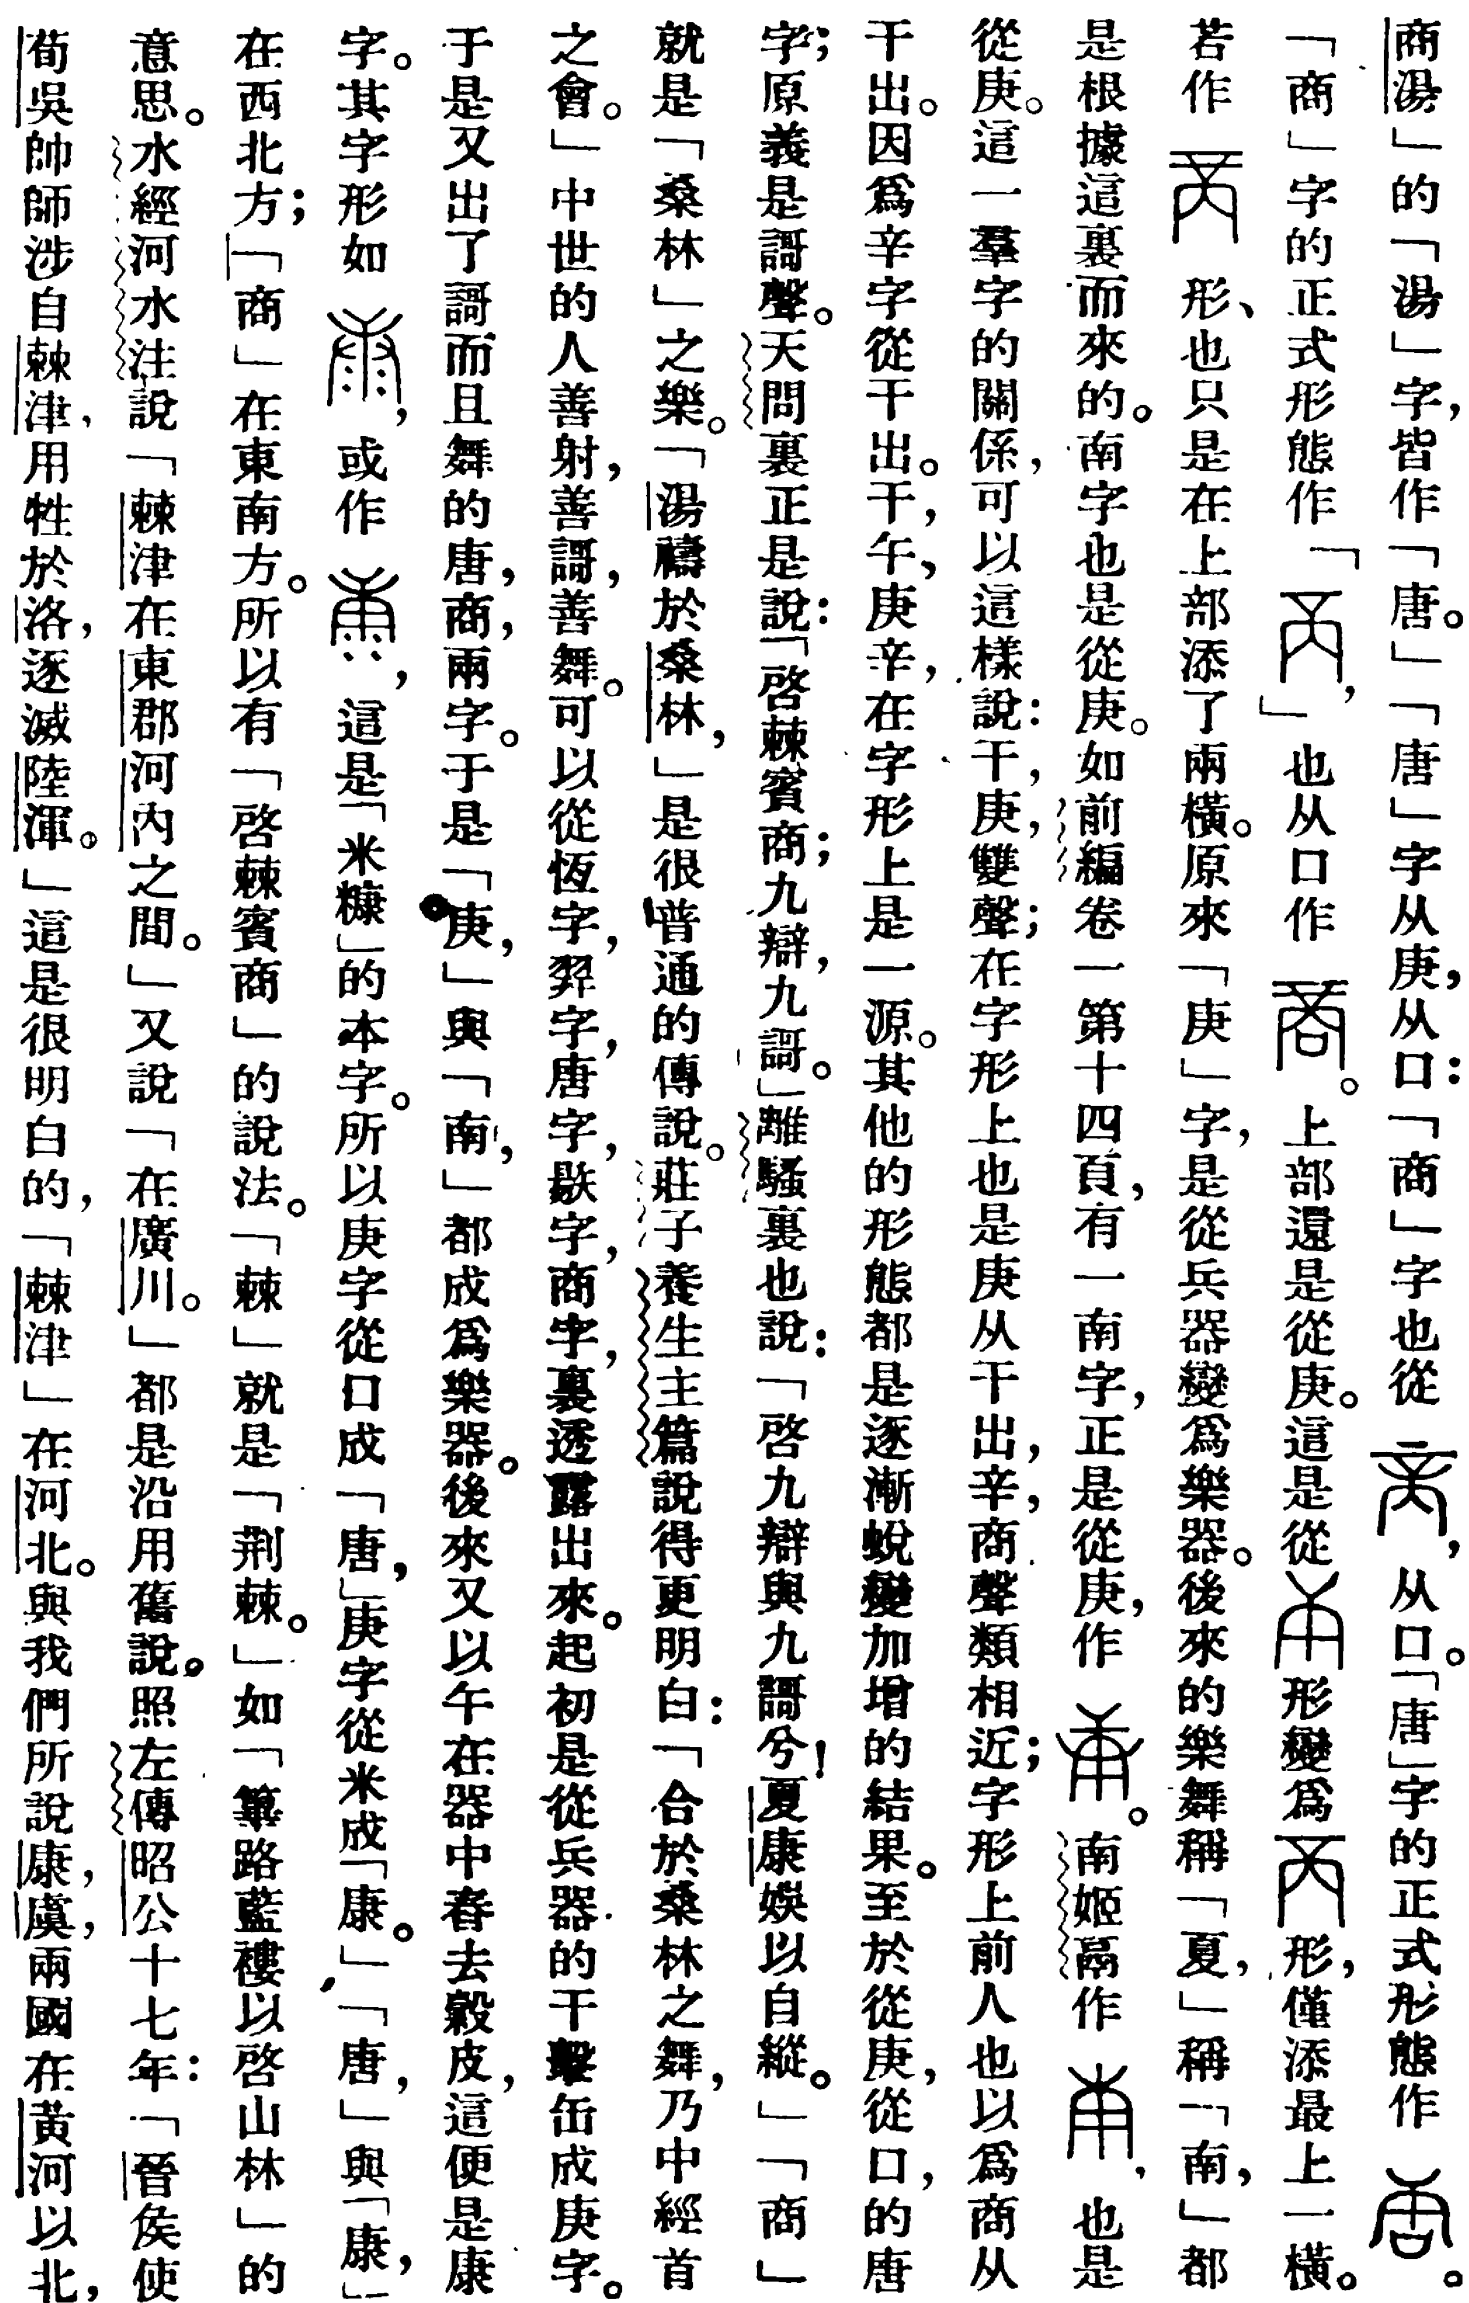 商湯」的「湯」字，皆作「唐。」「唐」字从庚，从口：「商」字也從，从口。「唐」字的正式形態作。
「商」字的正式形態作「，」也从口作。上部還是從庚。這是從形變爲形，僅添最上一橫。
若作形、也只是在上部添了兩橫。原來「庚」字，是從兵器變爲樂器。後來的樂舞稱「夏，」稱「南，」都
是根據這裏而來的。南字也是從庚。如前編卷一第十四頁，有一南字，正是從庚，作。南姬鬲作，也是
從庚。這一羣字的關係，可以這樣說：干，庚，雙聲；在字形上也是庚从干出，辛，商聲類相近；字形上前人也以爲商从
干出。因爲辛字從干出。干，午，庚辛，在字形上是一源。其他的形態都是逐漸蛻變加增的結果。至於從庚，從口，的唐
字；原義是謌聲。天問裏正是說：「啓棘賓商；九辯，九謌。」離騷裏也說：「啓九辯與九謌兮！夏康娛以自縱。」「商」
就是「桑林」之樂。「湯禱於桑林，」是很普通的傳說。莊子養生主篇說得更明白：「合於桑林之舞，乃中經首
之會。」中世的人善射，善謌，善舞。可以從恆字，羿字，唐字，䦧字，商字，裏透露出來。起初是從兵器的干擊缶成庚字。
于是又出了謌而且舞的唐，商，兩字。于是「庚，」與「南，」都成爲樂器。後來又以午在器中舂去穀皮，這便是康
字。其字形如，或作，這是「米糠」的本字。所以庚字從口成「唐，」庚字從米成「康。」「唐，」與「康，」
在西北方；「商」在東南方。所以有「啓棘賓商」的說法。「棘」就是「荆棘。」如「篳路藍褸以啓山林」的
意思。水經河水注說「棘津在東郡河內之間。」又說「在廣川。」都是沿用舊說。照左傳昭公十七年：「晉侯使
荀吳帥師涉自棘津，用牲於洛，逐滅陸渾。」這是很明白的，「棘津」在河北。與我們所說康，虞，兩國在黃河以北，